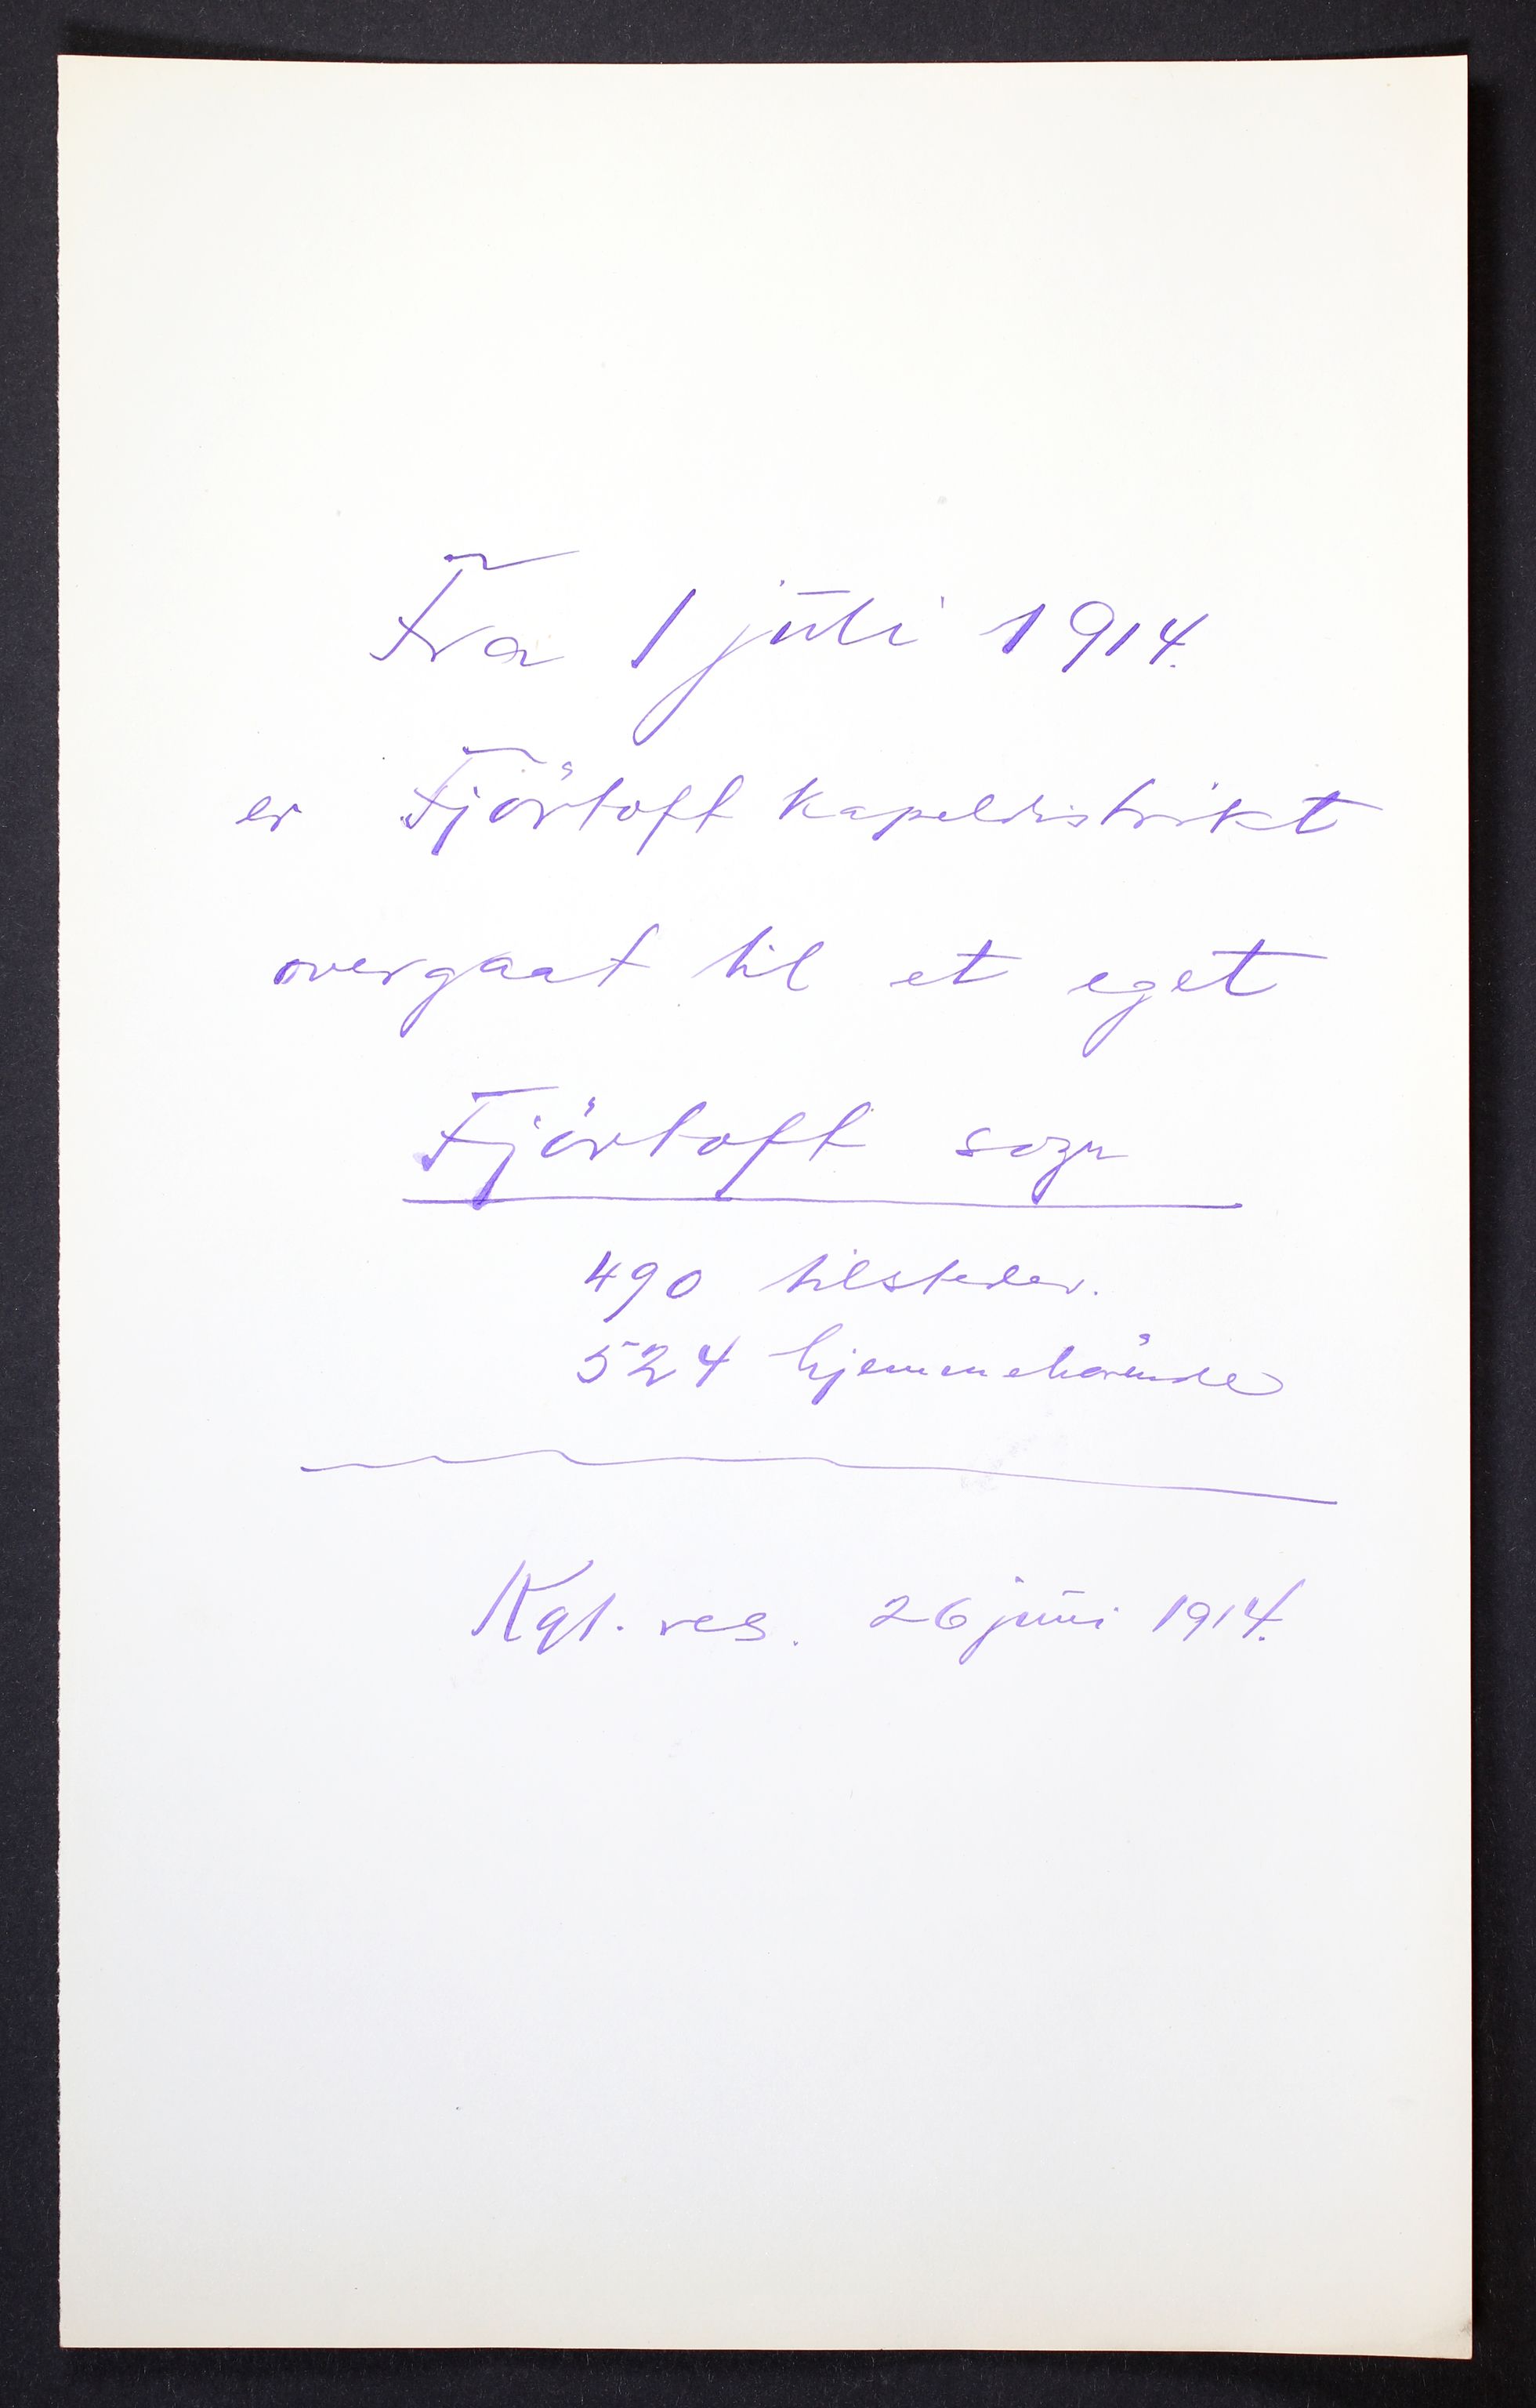 Fra 1 juli 1914.
er Fjörtoft kapeldistrikt
overgaat til et eget
Fjörtoft sogn
490 tilsteder.
524 hjemmehörende
Kgl. res. 26 juni 1914.